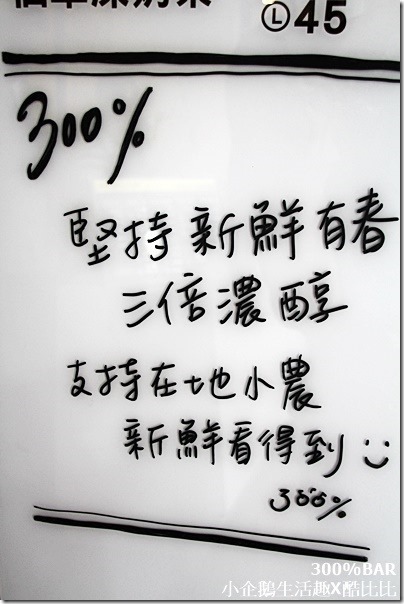 Ⓛ45
300%
堅持新鮮有春
三倍濃醇
支持在地小農
新鮮看得到
300%
300%BAR
小企鵝生活趣X酷比比